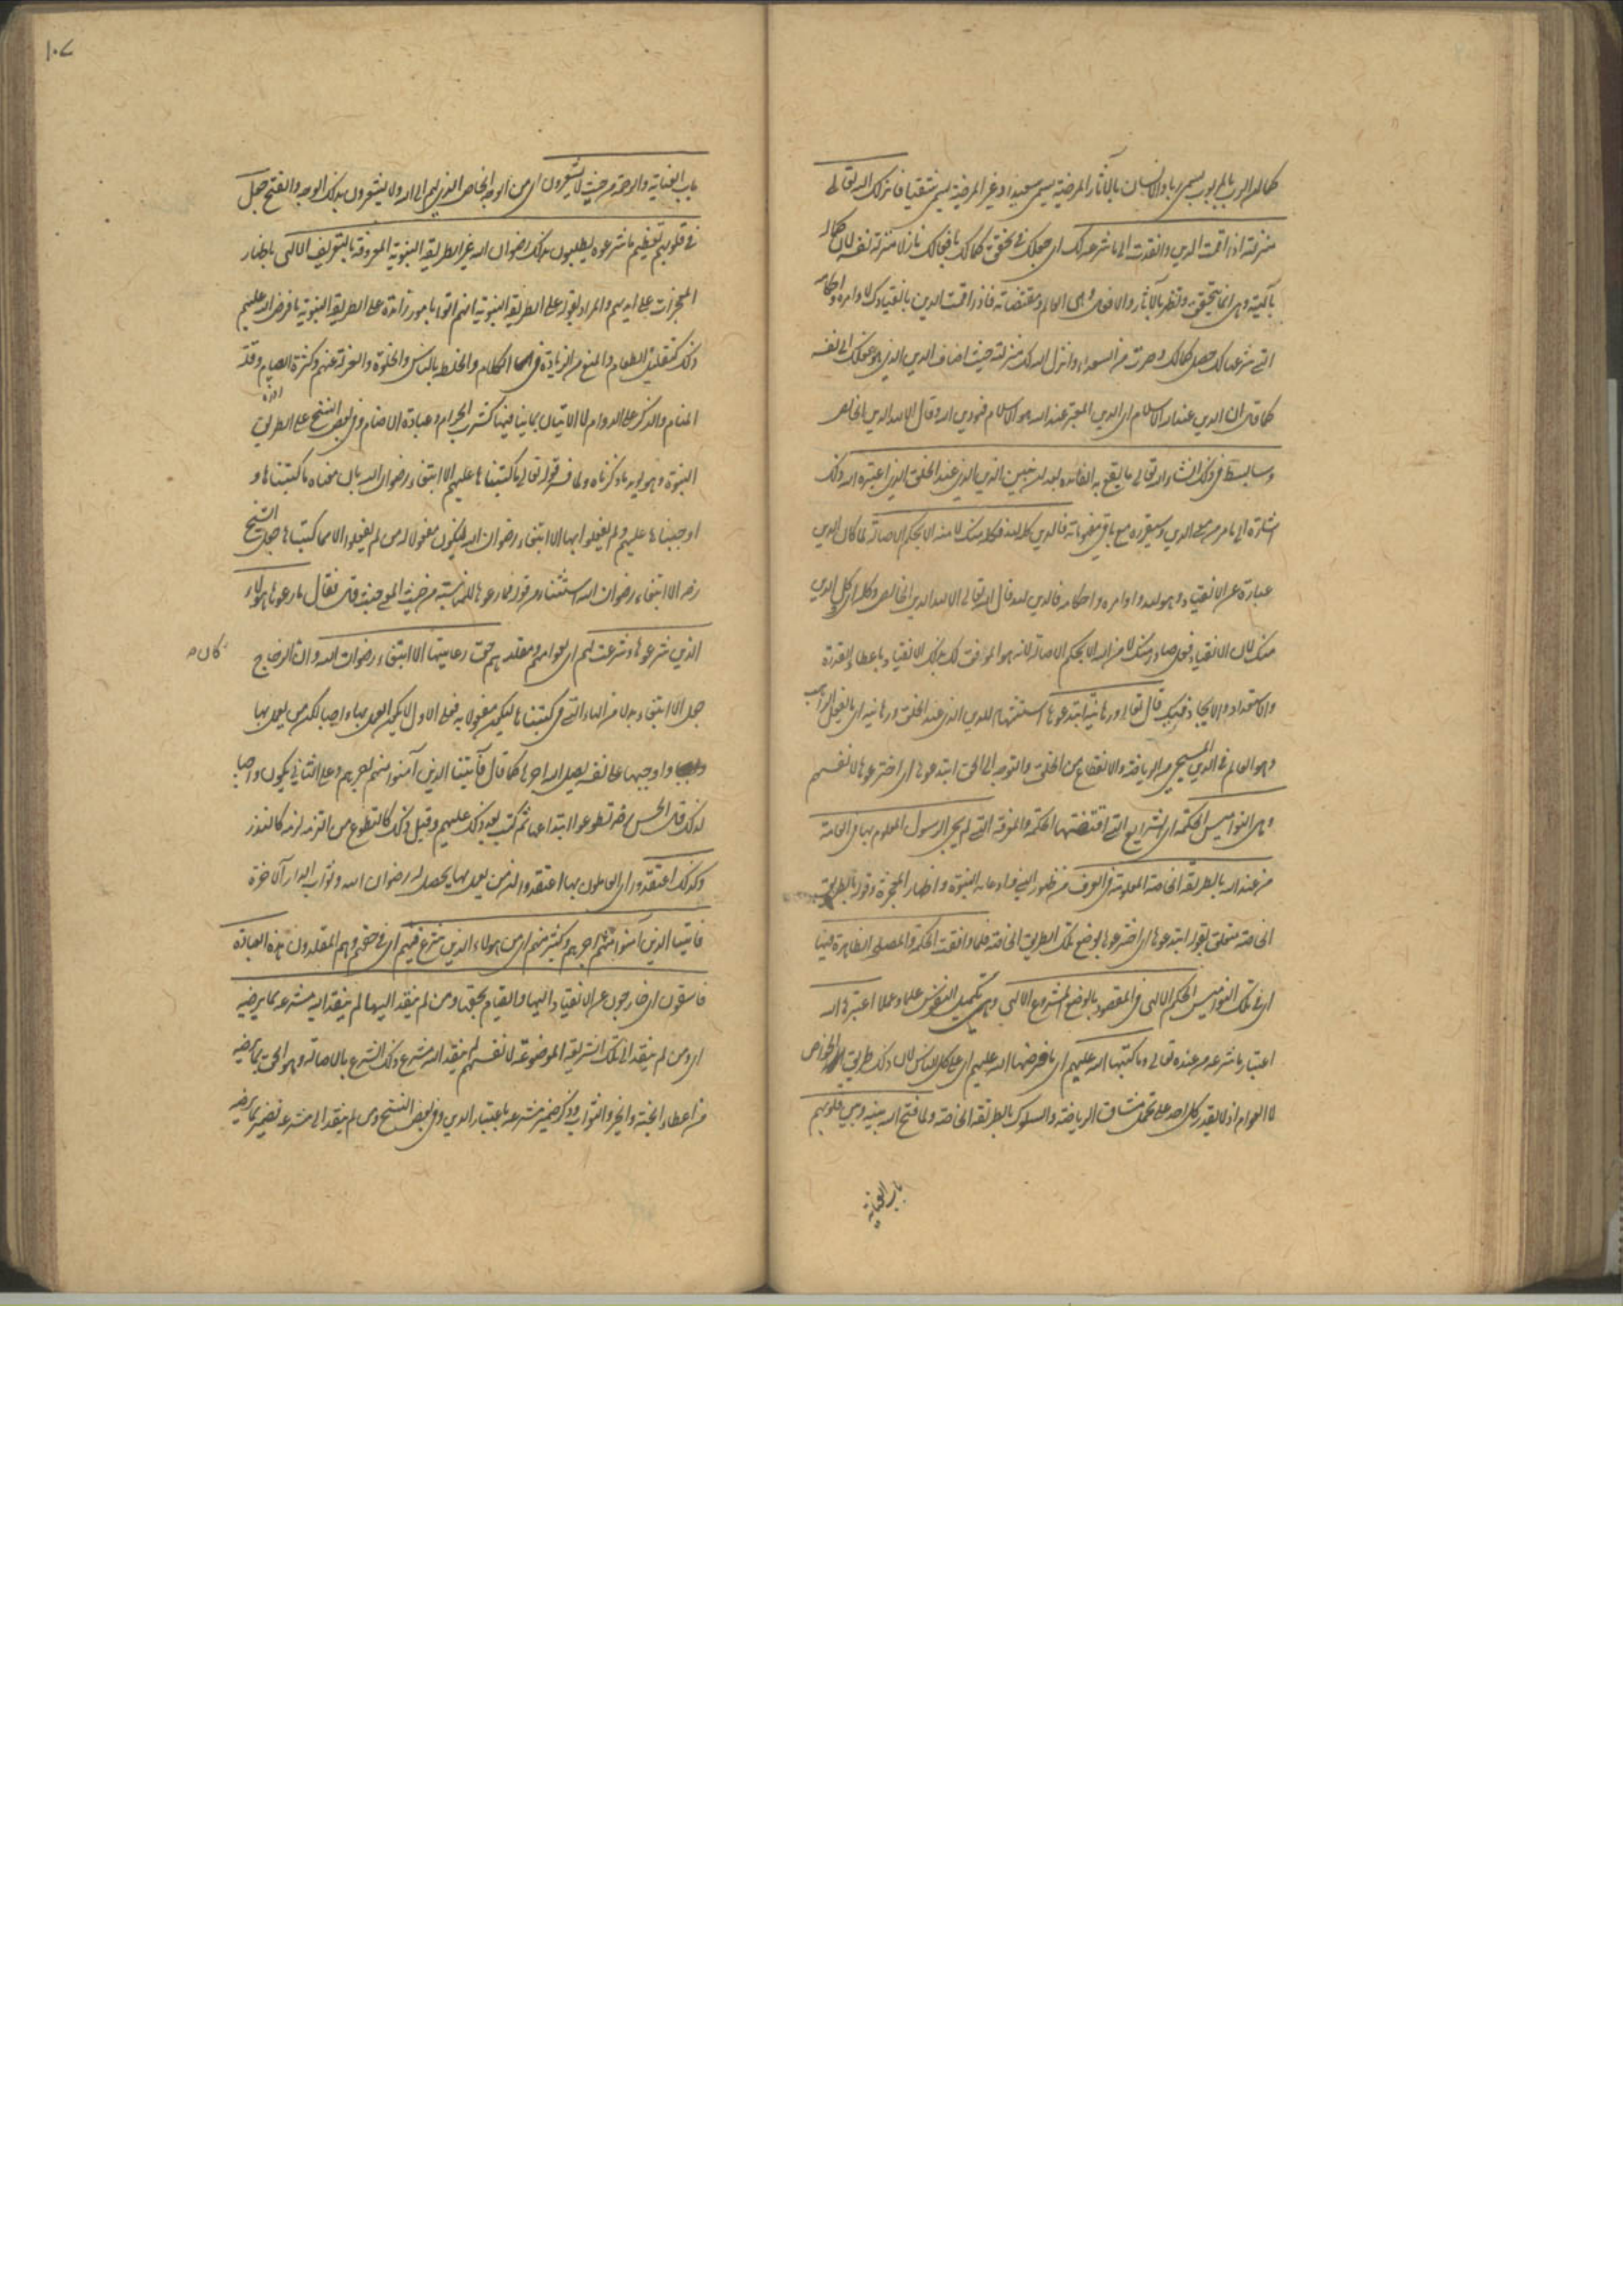 كما ان الرب بالمربوب يسمى ربا والانسان بالآثار المرضية يسمى سعيدا وغير المرضية يسمى شقيا فانزلك الله تعالى
منزلته اذا اقمت الدين وانقدت الى ما شرعه لك اى جعلك فى تحقق كمالك بافعالك نازلا منزلة نفسه لان كماله
بآلهيته وهى انما يتحقق ويظهر بالآثار والافعال وهى العالم ومقتضياته فاذا اقمت الدين بانقيادك لاوامره واحكامه
التى شرعها لك حصل كمالك وصرت من السعداء وانزل الله لك منزلته حيث اضاف الدين الذى هو عملك الى نفسه
كما قال ان الدين عند الله الاسلام اى الدين المعتبر عند الله هو الاسلام فهو دين الله وقال الا لله الدين الخالص
وسابسط فى ذلك ان شاء الله تعالى ما يقع به الفائدة بعد ان نبين الدين الذى عند الخلق الذى اعتبره الله ذلك
اشارة الى ما مر من معنى الدين وسيقرره مع باقى مفهوماته فالدين كله لله وكله منك لا منه الا بحكم الاصالة لما كان الدين
عبارة عن الانقياد وهو لله واوامره واحكامه فالدين لله قال الله تعالى الا لله الدين الخالص وكله اى كل الدين
منك لان الانقياد فعل صادر منك لا من الله الا بحكم الاصالة لانه هو الموفق لك بذلك الانقياد باعطاء القدرة
والاستعداد والايجاد فيك قال تعالى ورهبانية ابتدعوها استشهاد للدين الذى عند الخلق ورهبانية اى ما يفعل الراهب
وهو العالم فى الدين المسيحى من الرياضة والانقطاع من الخلق والتوجه الى الحق ابتدعوها اى اخترعوها لانفسهم
وهى النواميس الحكمية اى الشرايع التى اقتضتها الحكمة والمعرفة التى لم يجئ الرسول المعلوم بها فى العامة
من عند الله بالطريقة الخاصة المعلومة فى العرف من ظهور النبى وادعائه النبوة واظهار المعجزة وقوله بالطريقة
الخاصة متعلق بقوله ابتدعوها اى اخترعوها بوضع تلك الطريق الخاصة فلما وافقت الحكمة والمصلحة الظاهرة فيها
اى فى تلك النواميس الحكم الالهى فى المقصود بالوضع المشروع الالهى وهى تكميل النفوس علما وعملا اعتبرها الله
اعتبار ما شرعه من عنده تعالى وما كتبها الله عليهم اى ما فرضها الله عليهم اى على كل الناس لان ذلك طريق الخواص
لا العوام اذ لا يقدر كل احد على تحمل مشاق الرياضة والسلوك بالطريقة الخاصة ولما فتح الله بينه وبين قلوبهم
باب العناية
١٠٧
باب العناية والرحمة من حيث لا يشعرون اى من الوجه الخاص الذى لهم الى الله ولا يشعرون بذلك الوجه والفتح جعل
فى قلوبهم تعظيم ما شرعوه يطلبون بذلك رضوان الله غير الطريقة النبوية المعروفة بالتعريف الالهى باظهار
المعجزات على ايديهم والمراد بقوله على الطريقة النبوية انهم اتوا بامور زائدة على الطريقة النبوية ما فرض الله عليهم
ذلك كتقليل الطعام والمنع من الزيادة فى الكلام والخلط بالناس والخلوة والعزلة عنهم وكثرة الصيام وقلة
المنام والذكر على الدوام لا الاتيان بما ينافيها كشرب الحرام وعبادة الاصنام وفى بعض النسخ على الطريق
النبوة وهو يؤيد ما ذكرناه ولما فسر قوله تعالى ما كتبناها عليهم الا ابتغاء رضوان الله بان معناه ما كتبناها و
اوجبناها عليهم ولم يفعلوا بها الا ابتغاء رضوان الله فيكون مفعولا له من لم يفعلوا لا مما كتبناها جعل الشيخ
رضه الا ابتغاء رضوان الله استثناء من قوله فما رعوها للمناسبة من حيث المعنى حيث قال فقال ما رعوها هؤلاء
الذين شرعوها وشرعت لهم اى عوامهم ومقلدوهم حق رعايتها الا ابتغاء رضوان الله وان الزجاج
جعل الا ابتغاء بدلا من الهاء التى فى كتبناها ليكون مفعولا به فعلى الاول لا يكون العمل بها واجبا لكن من يعمل بها
واوجبها على نفسه يعطى الله اجرها كما قال فآتينا الذين آمنوا منهم اجرهم وعلى الثانى يكون واجبا
لذلك قال الحسن رضه تطوعوا ابتداعها ثم كتب بعد ذلك عليهم وقيل ذلك كالتطوع من التزمه لزمه كالنذر
وكذلك اعتقدوا اى العاملون بها اعتقدوا ان من يعمل بها يحصل له رضوان الله وثواب الدار الآخرة
فآتينا الذين آمنوا منهم اجرهم وكثير منهم اى من هؤلاء الذين شرع فيهم اى فى حقهم وهم المقلدون هذه العبادة
فاسقون اى خارجون عن الانقياد اليها والقيام بحقها ومن لم ينقد اليها لم ينقد اليه مشرعه بما يرضيه
اى ومن لم ينقد الى تلك الشريعة الموضوعة لانفسهم لم ينقد اليه مشرع ذلك الشرع بالاصالة وهو الحق بما يرضيه
من اعطاء الجنة والخير والثواب وذكر ضمير مشرعه باعتبار الدين وفى بعض النسخ ومن لم ينقد الى مشرعه فضمير بما يرضيه